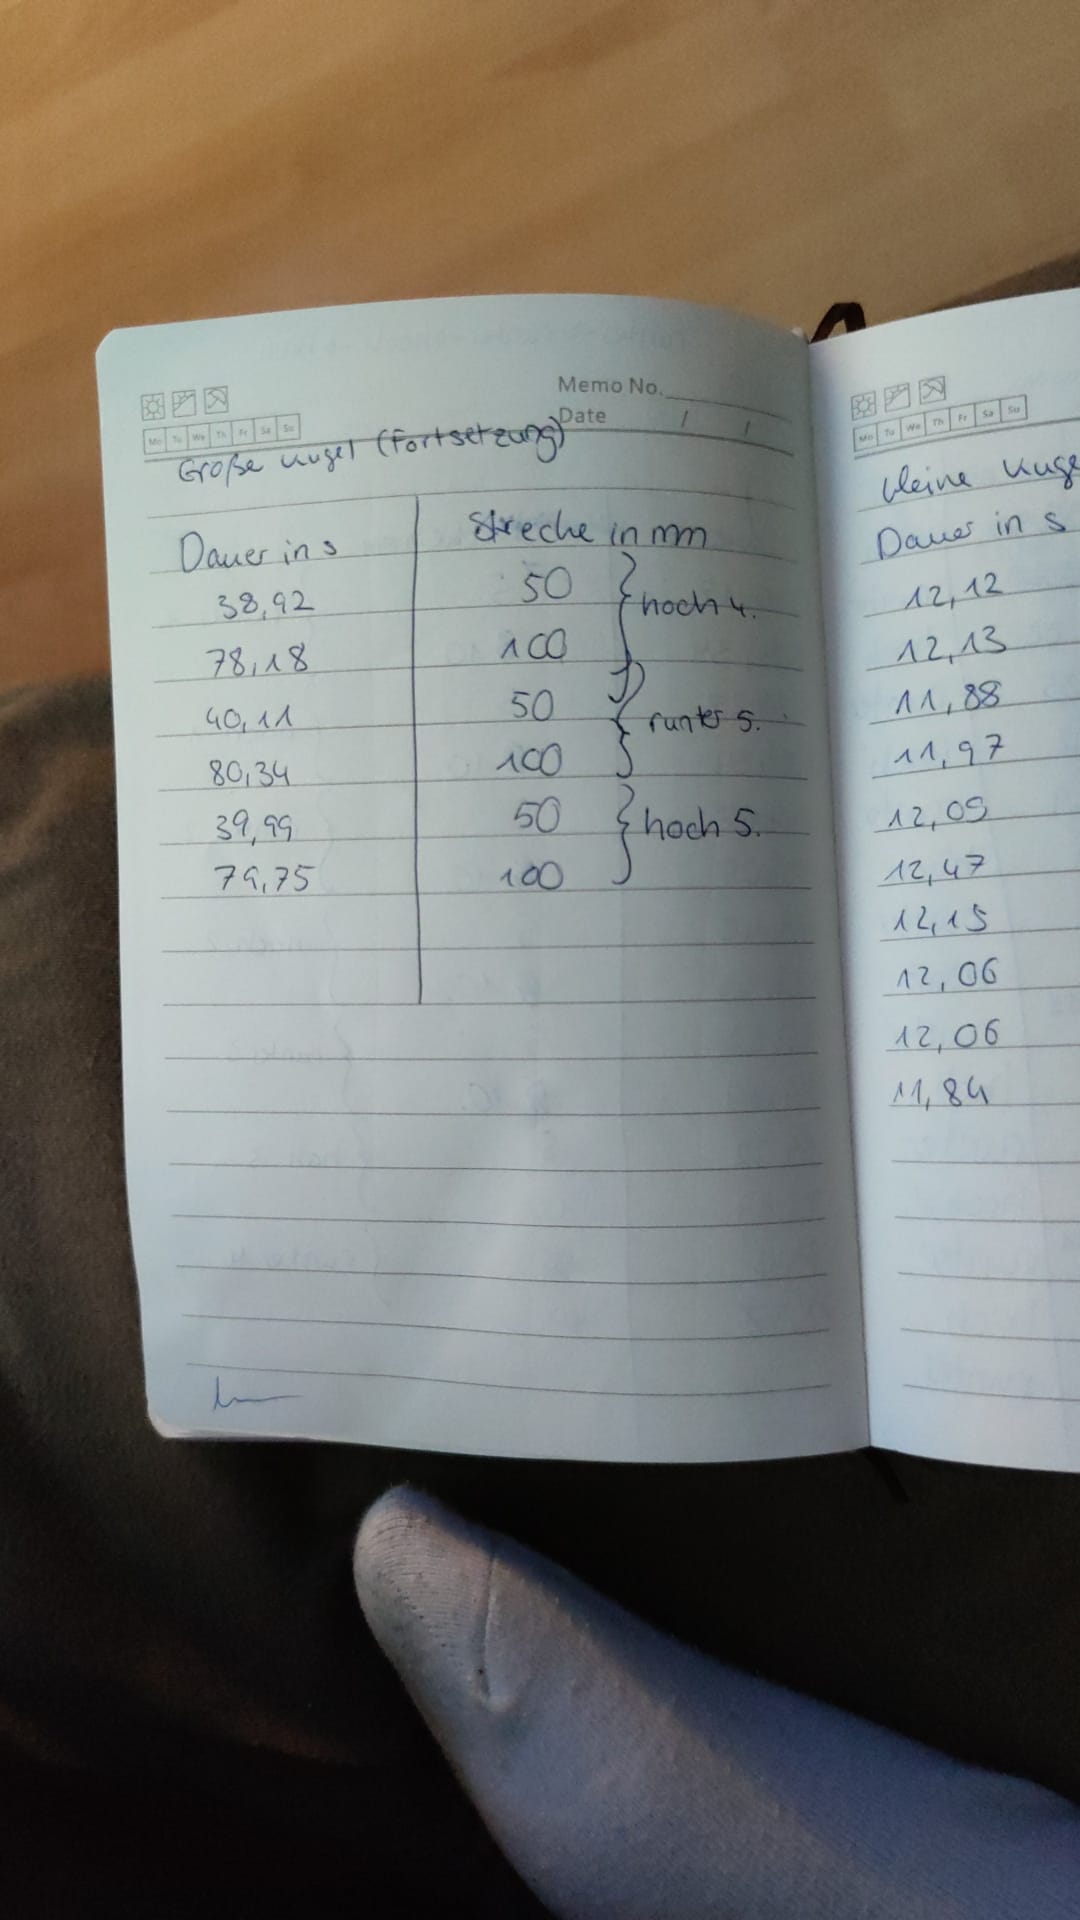 Memo No.
Date / /
Mo Tu We Th Fr Sa Su
Große Kugel (Fortsetzung)
Dauer in s Strecke in mm
38,92 50 hoch 4.
78,18 100
40,11 50 runter 5.
80,34 100
39,99 50 hoch 5.
79,75 100
Mo Tu We Th Fr Sa Su
kleine Kuge
Dauer in s
12,12
12,13
11,88
11,97
12,09
12,47
12,15
12,06
12,06
11,84